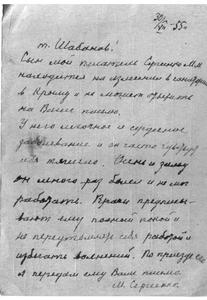 30/XI-55 г.
т. Шабанов!
Сын мой писатель Сергиенко М.М.
находится на излечении в санатории
в Крыму и не может ответить
на Ваше письмо.
У него легочное и сердечное
заболевание и он часто чувствует
себя тяжело. Осень и зиму
он много раз болел и не мог
работать. Врачи предписы-
вают ему полный покой и
не переутомлять себя работой и
избегать волнений. По приезде
я передам ему Ваше письмо.
М. Сергиенко